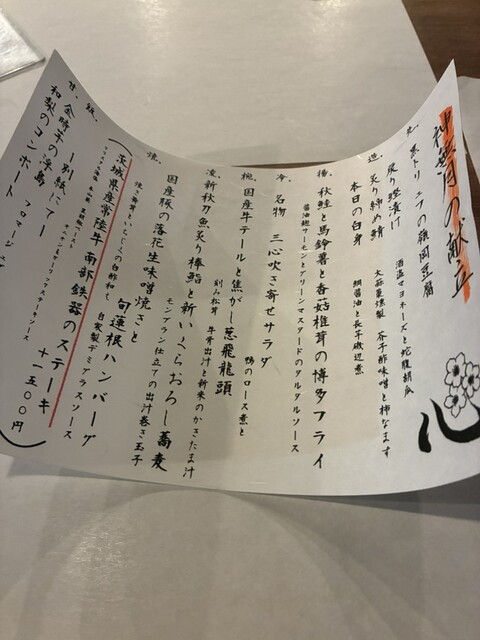 神無月の献立
心
戻り鰹漬け 酒盗マヨネーズと蛇腹胡瓜
造、炙り締め鯖 大蒜薬味製 芥子酢味噌と柿なます
本日の白身 鯛醤油と長芋磯辺煮
揚、秋鮭と馬鈴薯と香茹椎茸の博多フライ
醤油麹サーモンとグリーンマスタードのタルタルソース
冷、名物 三心吹き寄せサラダ
鴨のロース煮と
椀、国産牛テールと焦がし葱飛龍頭
刻み松茸 牛骨出汁と新米のかきたま汁
凌、新秋刀魚炙り棒鮨と新いくらおろし蕎麦
モンブラン仕立ての出汁巻き玉子
焼、国産豚の落花生味噌焼きと
旬蓮根ハンバーグ
自家製デミグラスソース
(茨城県産常陸牛 南部鉄器のステーキ 十一五〇〇円)
飯、ー別紙にてー
甘、金時芋の浮島
和梨のコンポート